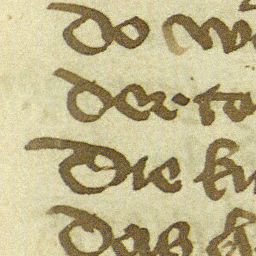 do w
der to
Die ku
das